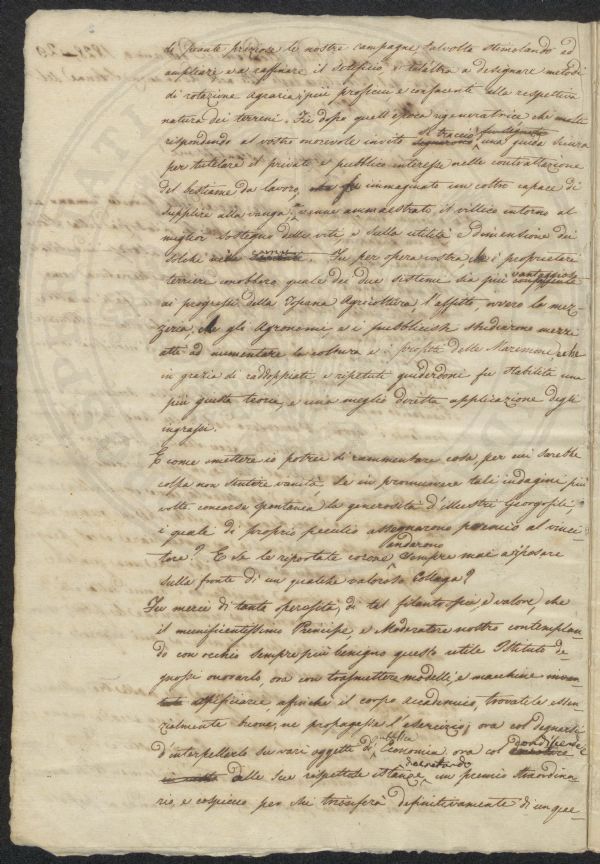 di piante preziose le nostre campagne, talvolta stimolando ad
ampliare e a raffinare il setificio, e talaltra a designare metodi
di rotazione agraria più proficui e confacenti alla respettiva
natura dei terreni. Fu dopo quell'epoca rigeneratrice che molti
rispondendo al vostro onorevole invito si tracciò una guida sicura
per tutelare il privato e pubblico interesse nelle contrattazione
del bestiame da lavoro, fu immaginato un coltro capace di
supplire alla vanga, venne ammaestrato il villico intorno al
miglior sostegno delle viti, e sulla utilità e dimensione dei
. Fu per opera vostra che i proprietari
terrieri conobbero quale dei due sistemi sia più vantaggioso
ai progressi della Toscana Agricoltura, l'affitto ovvero la mez-
zeria, che gli Agronomi, e i pubblicisti studiarono mezzi
atti ad aumentare la coltura e i prodotti delle Maremme, e che
in grazia di raddoppiati e ripetuti guiderdoni fu stabilita una
più giusta teoria, e una meglio diretta applicazione degli
ingrassi.
E come omettere io potrei di rammentare cosa, per cui sarebbe
colpa non sentire vanità, se in promuovere tali indagini più
volte concorse spontanea la generosità d'illustri Georgofili,
i quali di proprio peculio assegnarono premio al vinci-
tore? E se le riportate corone andarono sempre mai a posare
sulla fronte di un qualche valoroso Collega?
Fu mercè di tanta operosità, di tal filantropia e valore, che
il munificentissimo Principe, e Moderatore nostro contemplan-
do con occhio sempre più benigno questo utile Istituto de-
gnossi onorarlo, ora con trasmettere modelli, e machine
affinchè il corpo accademico, trovatele essen-
zialmente buone, ne propagasse l'esercizio; ora col degnarsi
d'interpellarlo su vari oggetti di pubblica Economia, ora col condiscendere
alle sue rispettose istanze decretando un premio straordina-
rio, e cospicuo per chi trionferà definitivamente di un que-